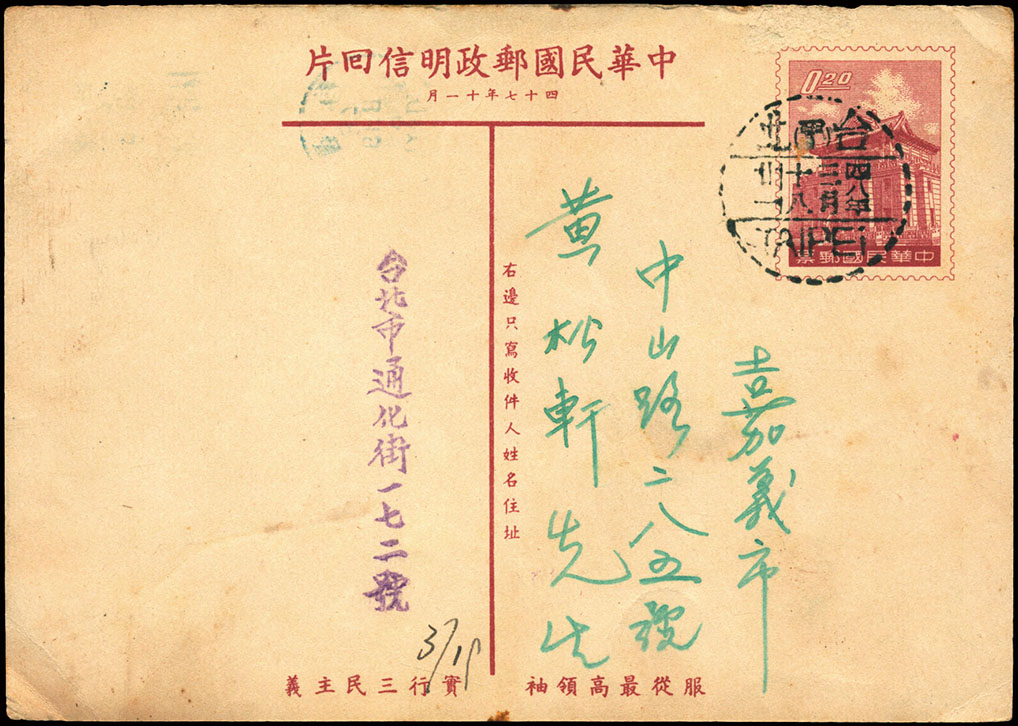 中華民國郵政明信回片
四十七年十一月
0.20
中華民國郵票
台北
四八年
三月
十八
TAIPEI
嘉義市
中山路二八五號
黃松軒先生
右邊只寫收件人姓名住址
台北市通化街一七二號
服從最高領袖
實行三民主義